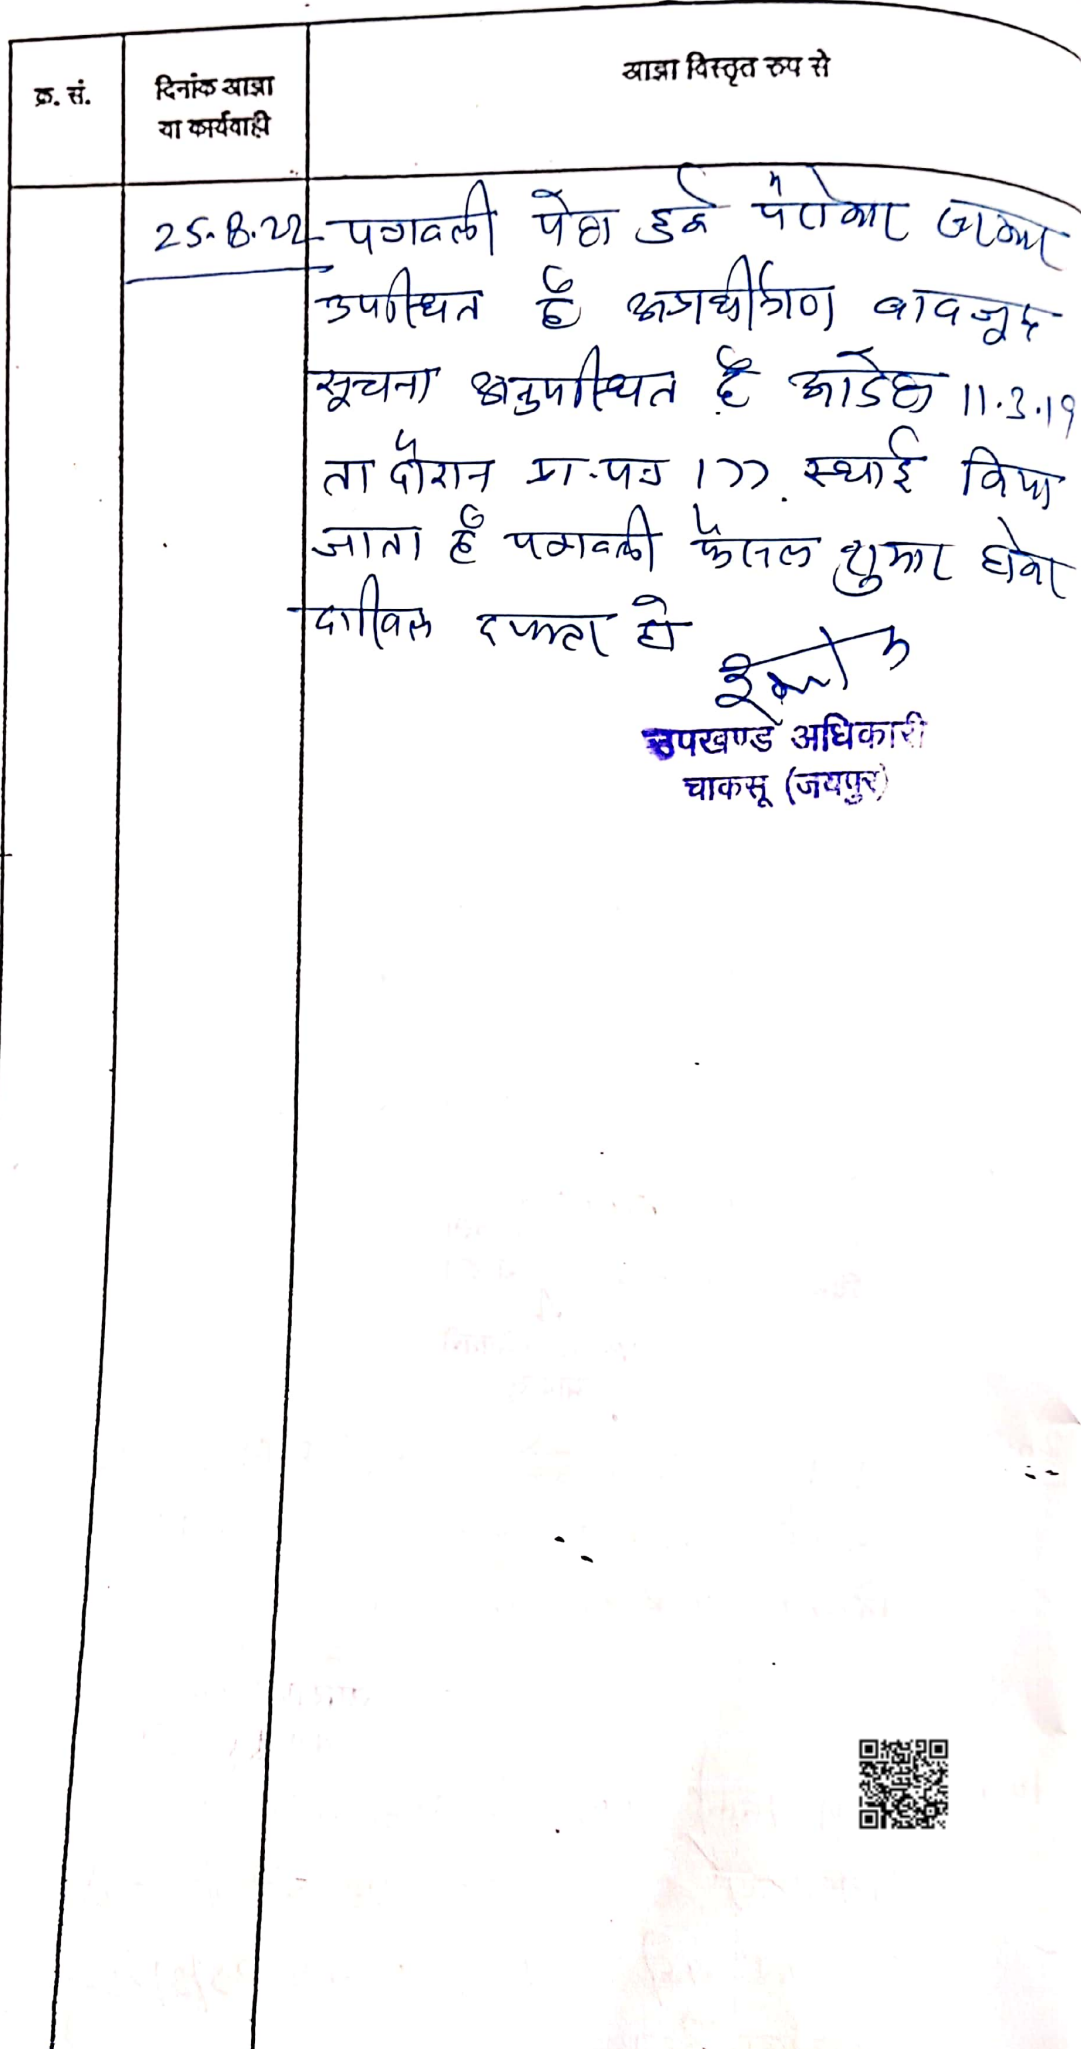 क्र. सं.
दिनांक आज्ञा
या कार्यवाही
आज्ञा विस्तृत रूप से
25.8.22 पत्रावली पेश हुई पैरोकार
उपस्थित है अप्रार्थीगण बावजूद
सूचना अनुपस्थित है आदेश 11.3.19
ता दौरान प्रा.पत्र 177 स्थाई किया
जाता है पत्रावली फैसल शुमार होकर
दाखिल दफ्तर हो
उपखण्ड अधिकारी
चाकसू (जयपुर)